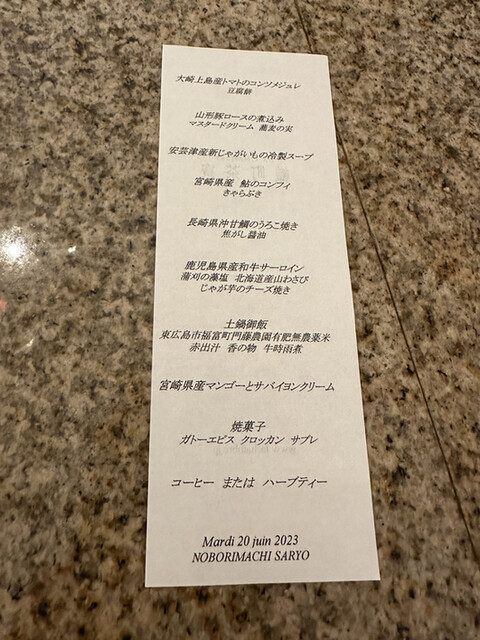 大崎上島産トマトのコンソメジュレ
豆腐餅
山形豚ロースの煮込み
マスタードクリーム 蕎麦の実
安芸津産新じゃがいもの冷製スープ
宮崎県産 鮎のコンフィ
きゃらぶき
長崎県沖甘鯛のうろこ焼き
焦がし醤油
鹿児島県産和牛サーロイン
蒲刈の藻塩 北海道産山わさび
じゃが芋のチーズ焼き
土鍋御飯
東広島市福富町門藤農園有肥無農薬米
赤出汁 香の物 牛時雨煮
宮崎県産マンゴーとサバイヨンクリーム
焼菓子
ガトーエピス クロッカン サブレ
コーヒー または ハーブティー
Mardi 20 juin 2023
NOBORIMACHI SARYO